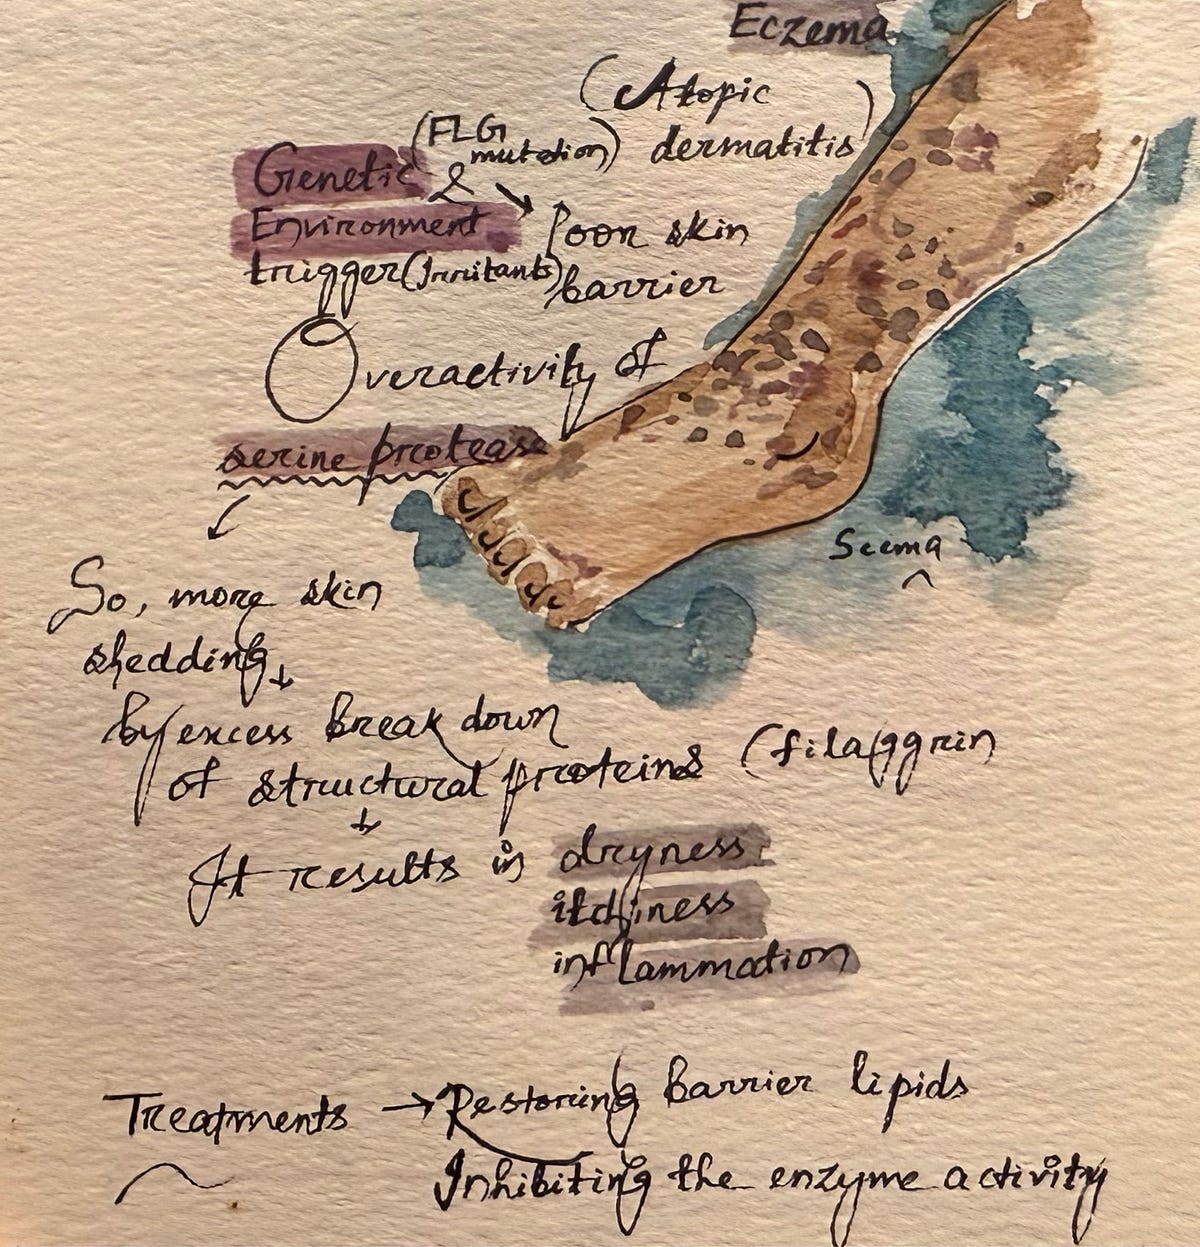 Eczema
(Atopic
dermatitis)
Genetic (FLG
mutation)
&
Environment
trigger (Irritants)
Poor skin
barrier
Overactivity of
serine protease
So, more skin
shedding
by excess break down
of structural proteins (filaggrin
It results in dryness
itchiness
inflammation
Treatments → Restoring barrier lipids
Inhibiting the enzyme activity
Seema